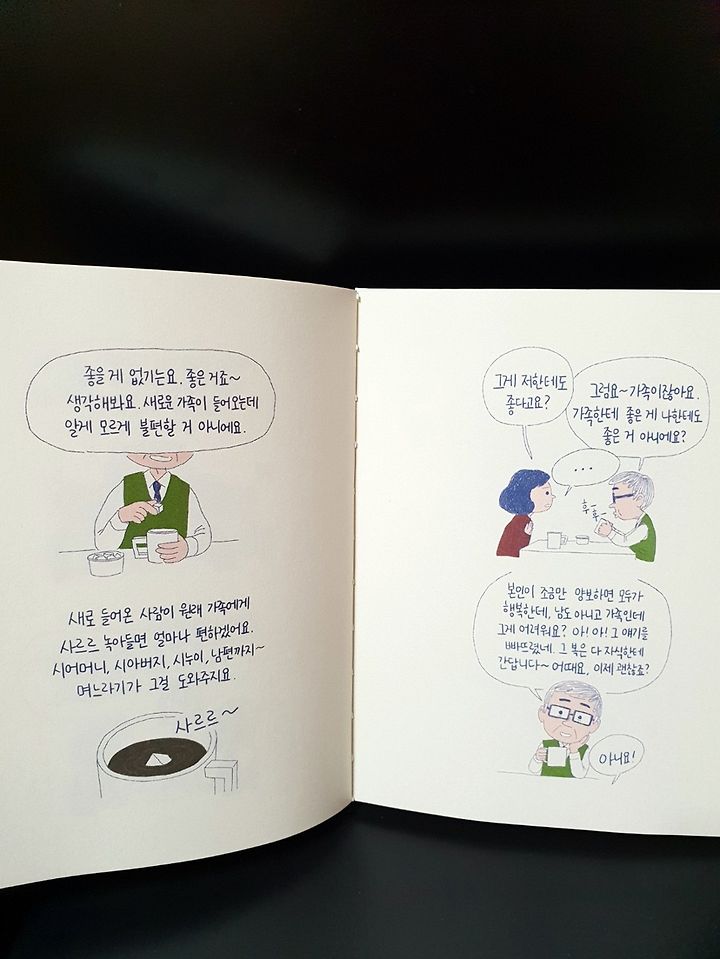 좋을 게 없기는요. 좋은 거죠~
생각해봐요. 새로운 가족이 들어오는데
알게 모르게 불편할 거 아니에요.
새로 들어온 사람이 원래 가족에게
사르르 녹아들면 얼마나 편하겠어요.
시어머니, 시아버지, 시누이, 남편까지~
며느라기가 그걸 도와주지요.
사르르~
그게 저한테도
좋다고요?
그럼요~ 가족이잖아요.
가족한테 좋은 게 나한테도
좋은 거 아니에요?
...
후-
후-
본인이 조금만 양보하면 모두가
행복한데, 남도 아니고 가족인데
그게 어려워요? 아! 아! 그 얘기를
빠뜨렸네. 그 복은 다 자식한테
간답니다~ 어때요, 이제 괜찮죠?
아니요!